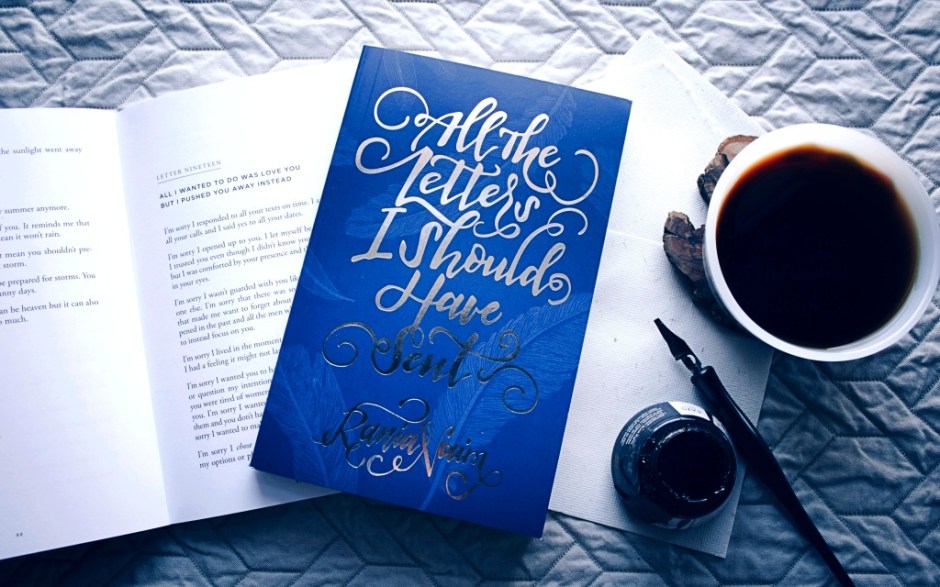 he sunlight went away
summer anymore.
f you. It reminds me that
ean it won't rain.
t mean you shouldn't pre-
storm.
be prepared for storms. You
nny days.
an be heaven but it can also
o much.
LETTER NINETEEN
ALL I WANTED TO DO WAS LOVE YOU
BUT I PUSHED YOU AWAY INSTEAD
I'm sorry I responded to all your texts on time, I a
all your calls and I said yes to all your dates.
I'm sorry I opened up to you. I let myself be
I trusted you even though I didn't know you
but I was comforted by your presence and t
in your eyes.
I'm sorry I wasn't guarded with you like
one else. I'm sorry that there was so
that made me want to forget about
pened in the past and all the men w
to instead focus on you.
I'm sorry I lived in the moment
I had a feeling it might not las
I'm sorry I wanted you to h
or question my intention
you were tired of women
you. I'm sorry I wante
them and you don't ha
sorry I wanted to ma
I'm sorry I chose
my options or p
All the
Letters
I Should
Have
Sent
Rania Naim